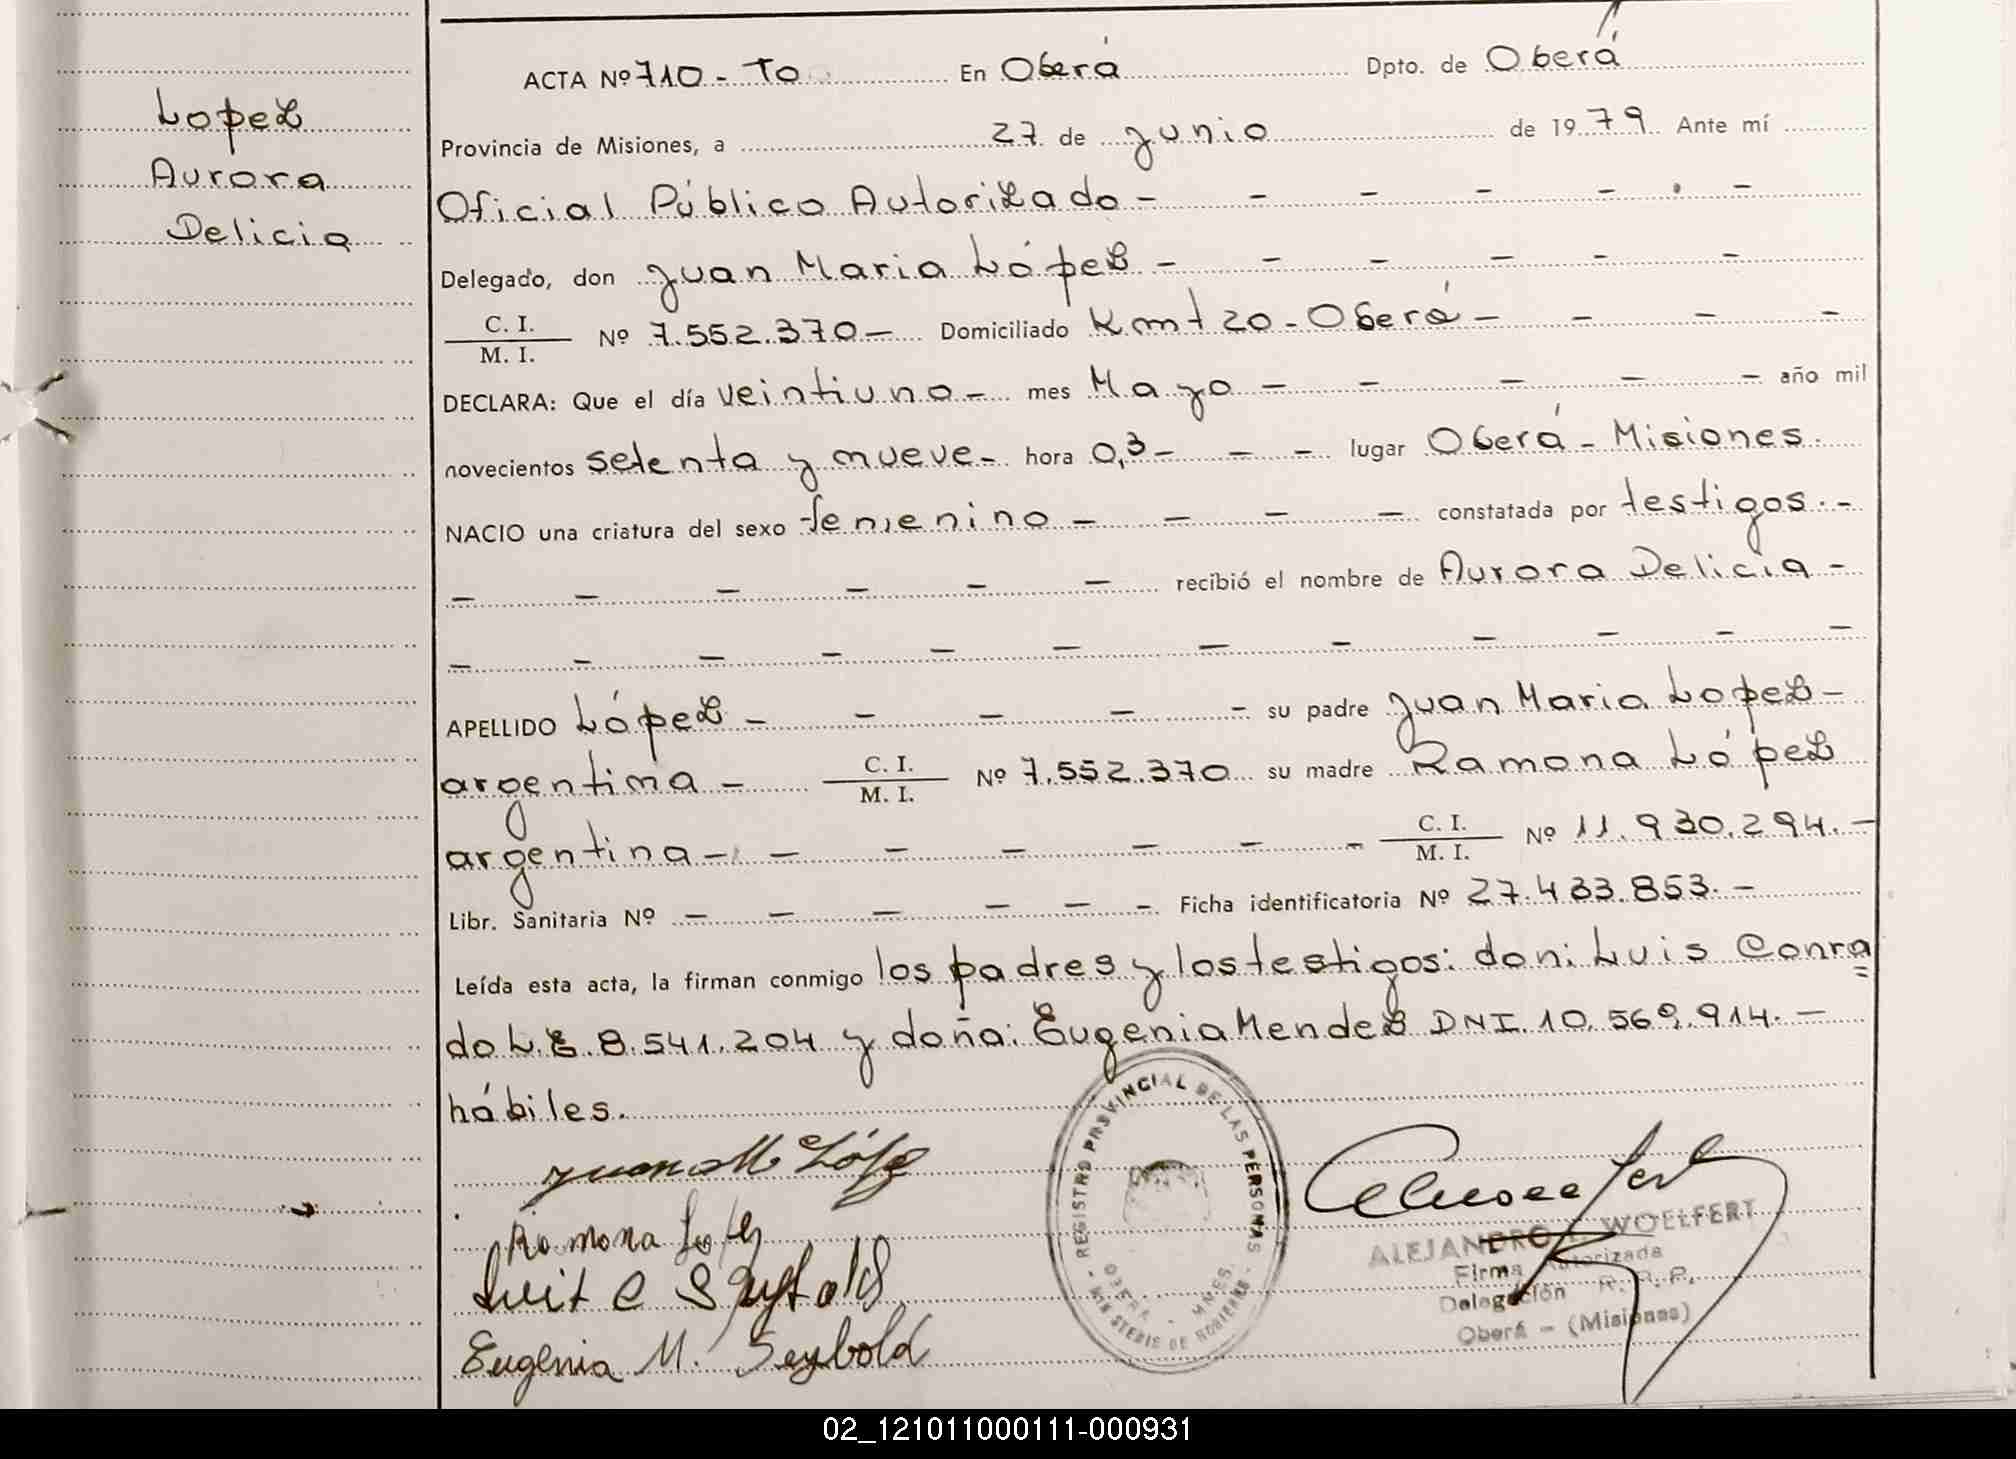 Lopez
Aurora
Delicia
ACTA Nº 710 - To En Oberá Dpto. de Oberá
Provincia de Misiones, a 27 de junio de 1979 Ante mí
Oficial Público Autorizado -
Delegado, don Juan Maria López -
C. I. / M. I. Nº 7.552.370 - Domiciliado Kmt 20 - Oberá -
DECLARA: Que el día veintiuno - mes Mayo - año mil
novecientos setenta y nueve - hora 0,3 - lugar Oberá - Misiones.
NACIO una criatura del sexo femenino - constatada por testigos. -
recibió el nombre de Aurora Delicia -
APELLIDO López - su padre Juan Maria Lopez -
argentina - C. I. / M. I. Nº 7.552.370 su madre Ramona López
argentina - C. I. / M. I. Nº 11.930.294. -
Libr. Sanitaria Nº - Ficha identificatoria Nº 27.433.853. -
Leída esta acta, la firman conmigo los padres y los testigos: don: Luis Conra
do L.E. 8.541.204 y doña: Eugenia Mendez DNI. 10.569.914. -
hábiles.
Juan M López
Ramona López
Luis C Seybold
Eugenia M. Seybold
REGISTRO PROVINCIAL DE LAS PERSONAS
OBERA - MNES.
MINISTERIO DE GOBIERNO
ALEJANDRO WOELFERT
Firma Autorizada
Delegación R. P.
Oberá - (Misiones)
02_121011000111-000931